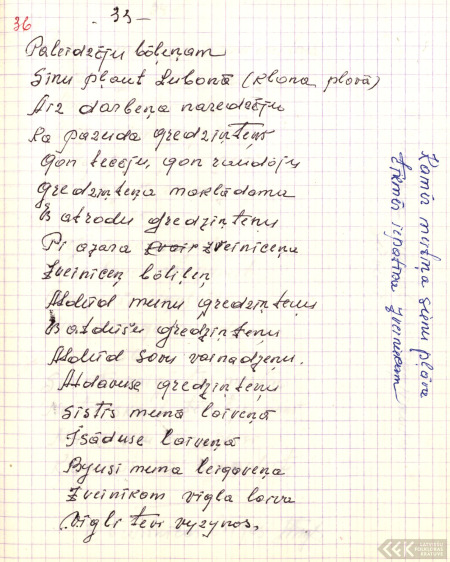 36
- 33 -
Paleidzēju bōleņam
Sīnu pļaut Lubonā (klona plovā)
Aiz darbeņa naredzēju
Ka pazuda gredziņteņš
Gon tecēju, gon raudōju
Gredziņteņa maklādama
Es atrodu gredziņteņu
Pi azara zveiniceņa
Zveiniceņ bōliļeņ
Atdūd munu gredziņteņu
Es atdūšu gredziņteņu
Atdūd sovu vainadzeņu.
Atdavuse gredziņteņu
Sistīs munā laiveņā
Īsāduse laiveņā
Byusi muna leigaveņa
Zveinīkam vīgla laiva
Vīgli tevi vyzynos.
Kamēr muosiņa sīnu pļōve